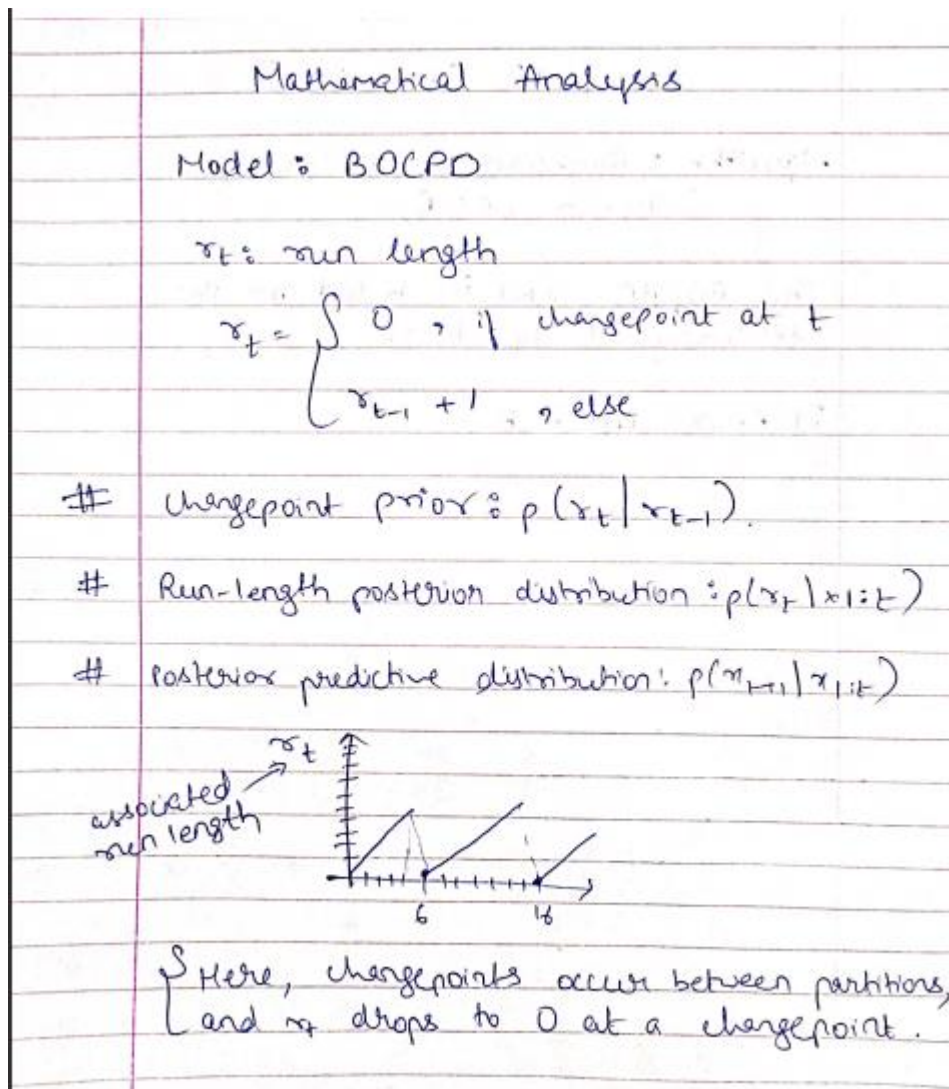 Mathematical Analysis
Model: BOCPD
r_t: run length
r_t = { 0 , if changepoint at t
r_{t-1} + 1 , else
# changepoint prior: p(r_t | r_{t-1}).
# Run-length posterior distribution: p(r_t | x_{1:t})
# Posterior predictive distribution: p(x_{t+1} | x_{1:t})
r_t
associated
run length
6
Here, changepoints occur between partitions,
and r_t drops to 0 at a changepoint.